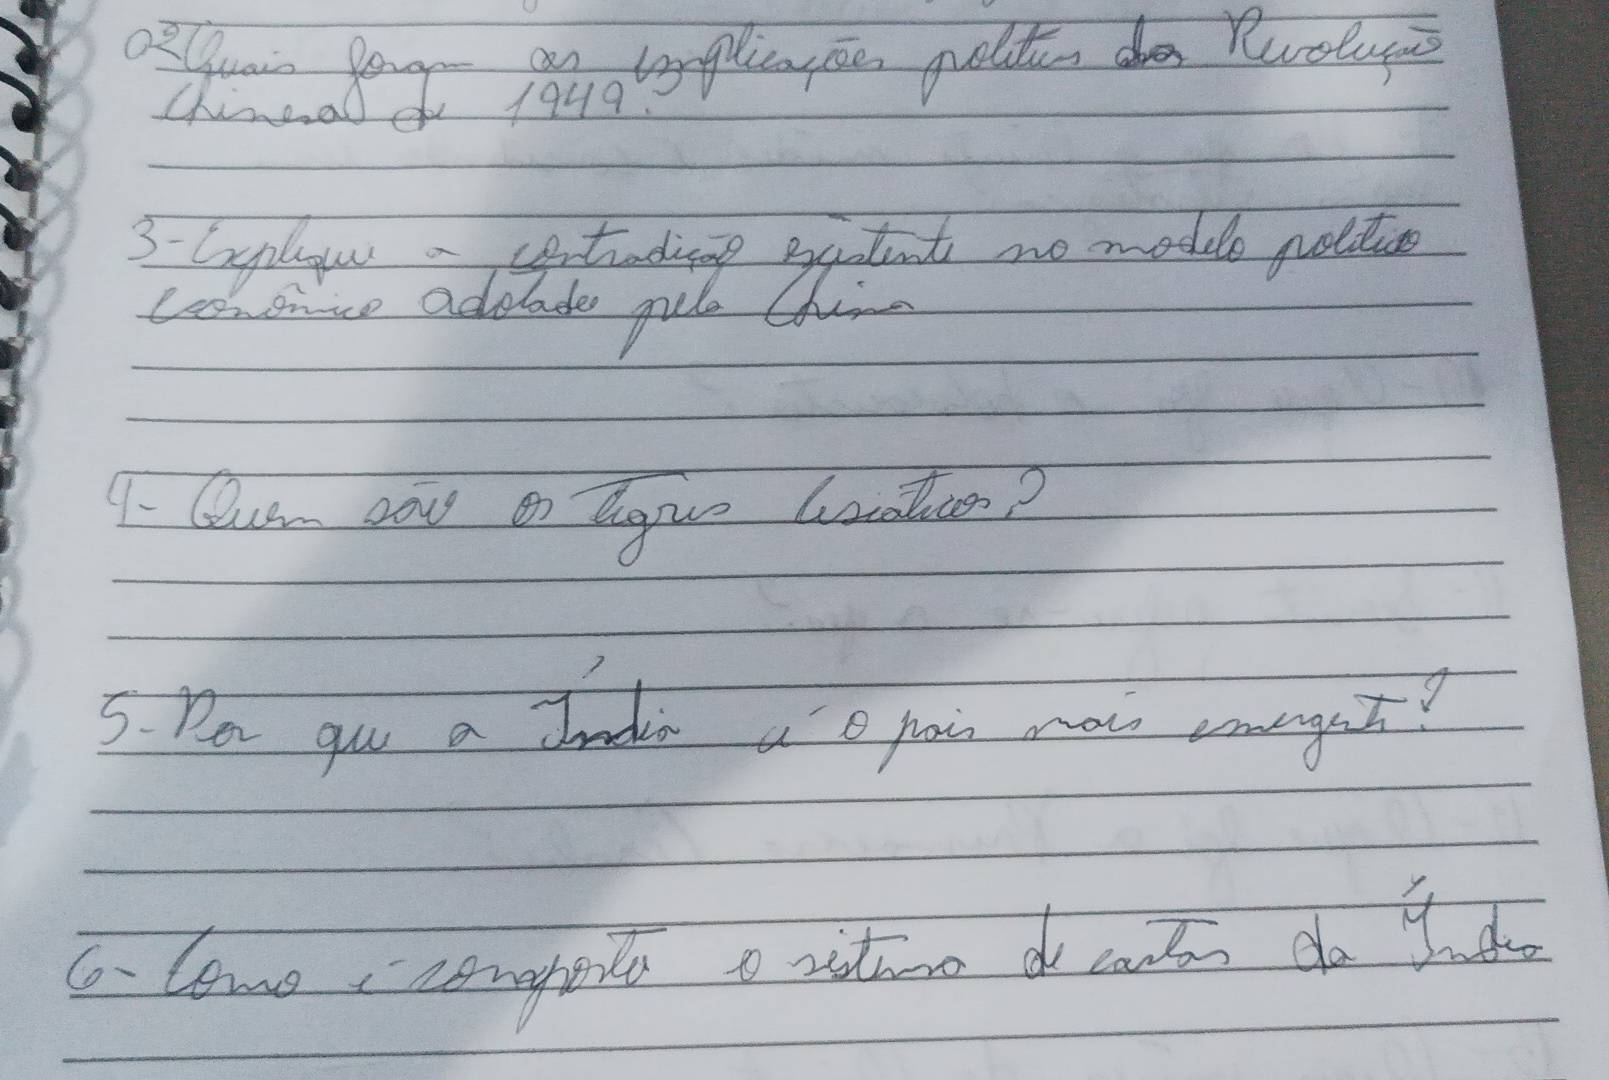 02 Quais foram as implicações politicas da Revolução
Chinesa de 1949?
3- Explique a contradição existente no modelo politico
econômico adotado pela China
4- Quem são os tigres Asiáticos?
5- Por que a Índia é o pais mais emergente?
6- Como é composto o sistema de castas da Índia